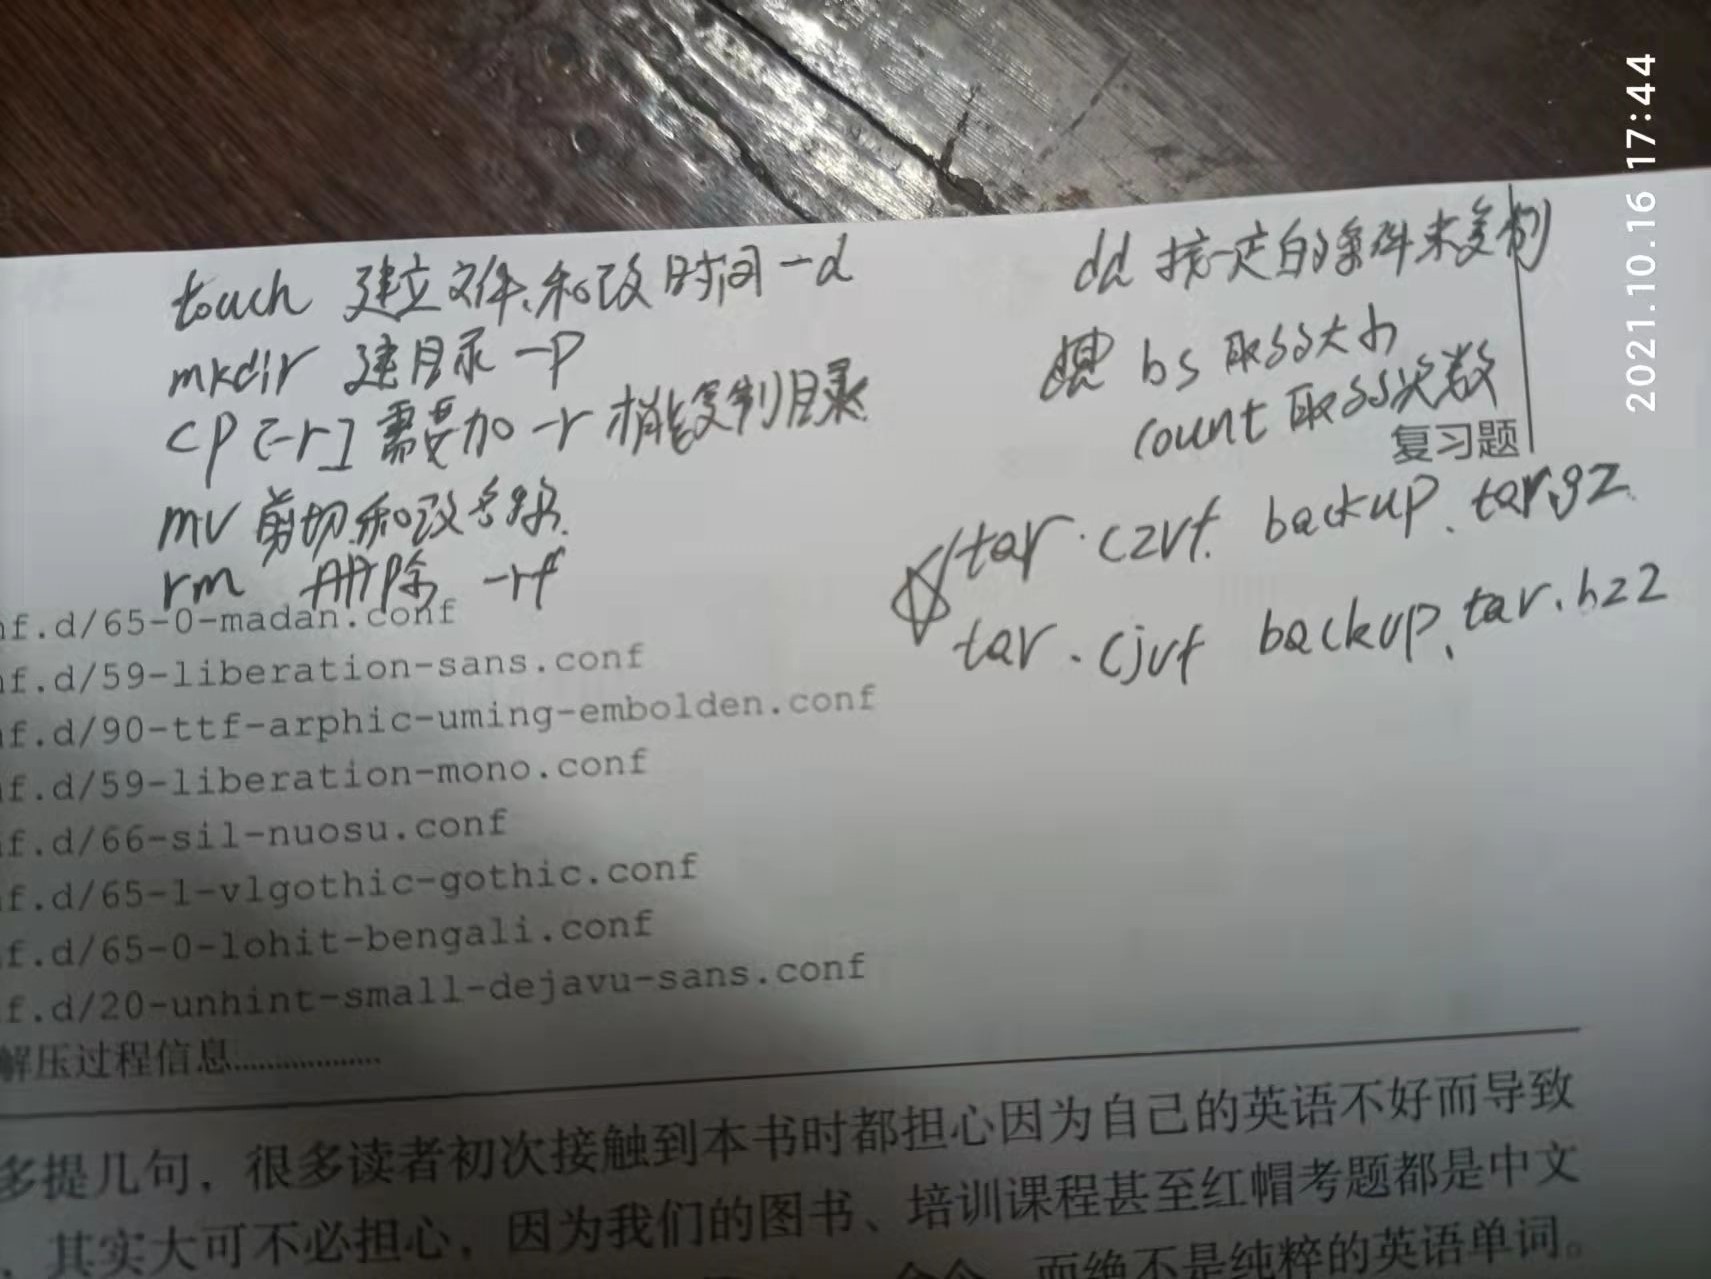 touch 建立文件、和改时间 -d
mkdir 建目录 -p
cp [-r] 需要加 -r 才能复制目录
mv 剪切和改名称.
rm 删除 -rf
dd 按一定的条件来复制
bs 取的大小
count 取的次数
复习题
tar . czvf. backup . tar.gz
tar . cjvf backup . tar.bz2
nf.d/65-0-madan.conf
nf.d/59-liberation-sans.conf
nf.d/90-ttf-arphic-uming-embolden.conf
nf.d/59-liberation-mono.conf
f.d/66-sil-nuosu.conf
f.d/65-1-vlgothic-gothic.conf
f.d/65-0-lohit-bengali.conf
f.d/20-unhint-small-dejavu-sans.conf
解压过程信息..................
多提几句，很多读者初次接触到本书时都担心因为自己的英语不好而导致
，其实大可不必担心，因为我们的图书、培训课程甚至红帽考题都是中文
而绝不是纯粹的英语单词。
2021.10.16 17:44